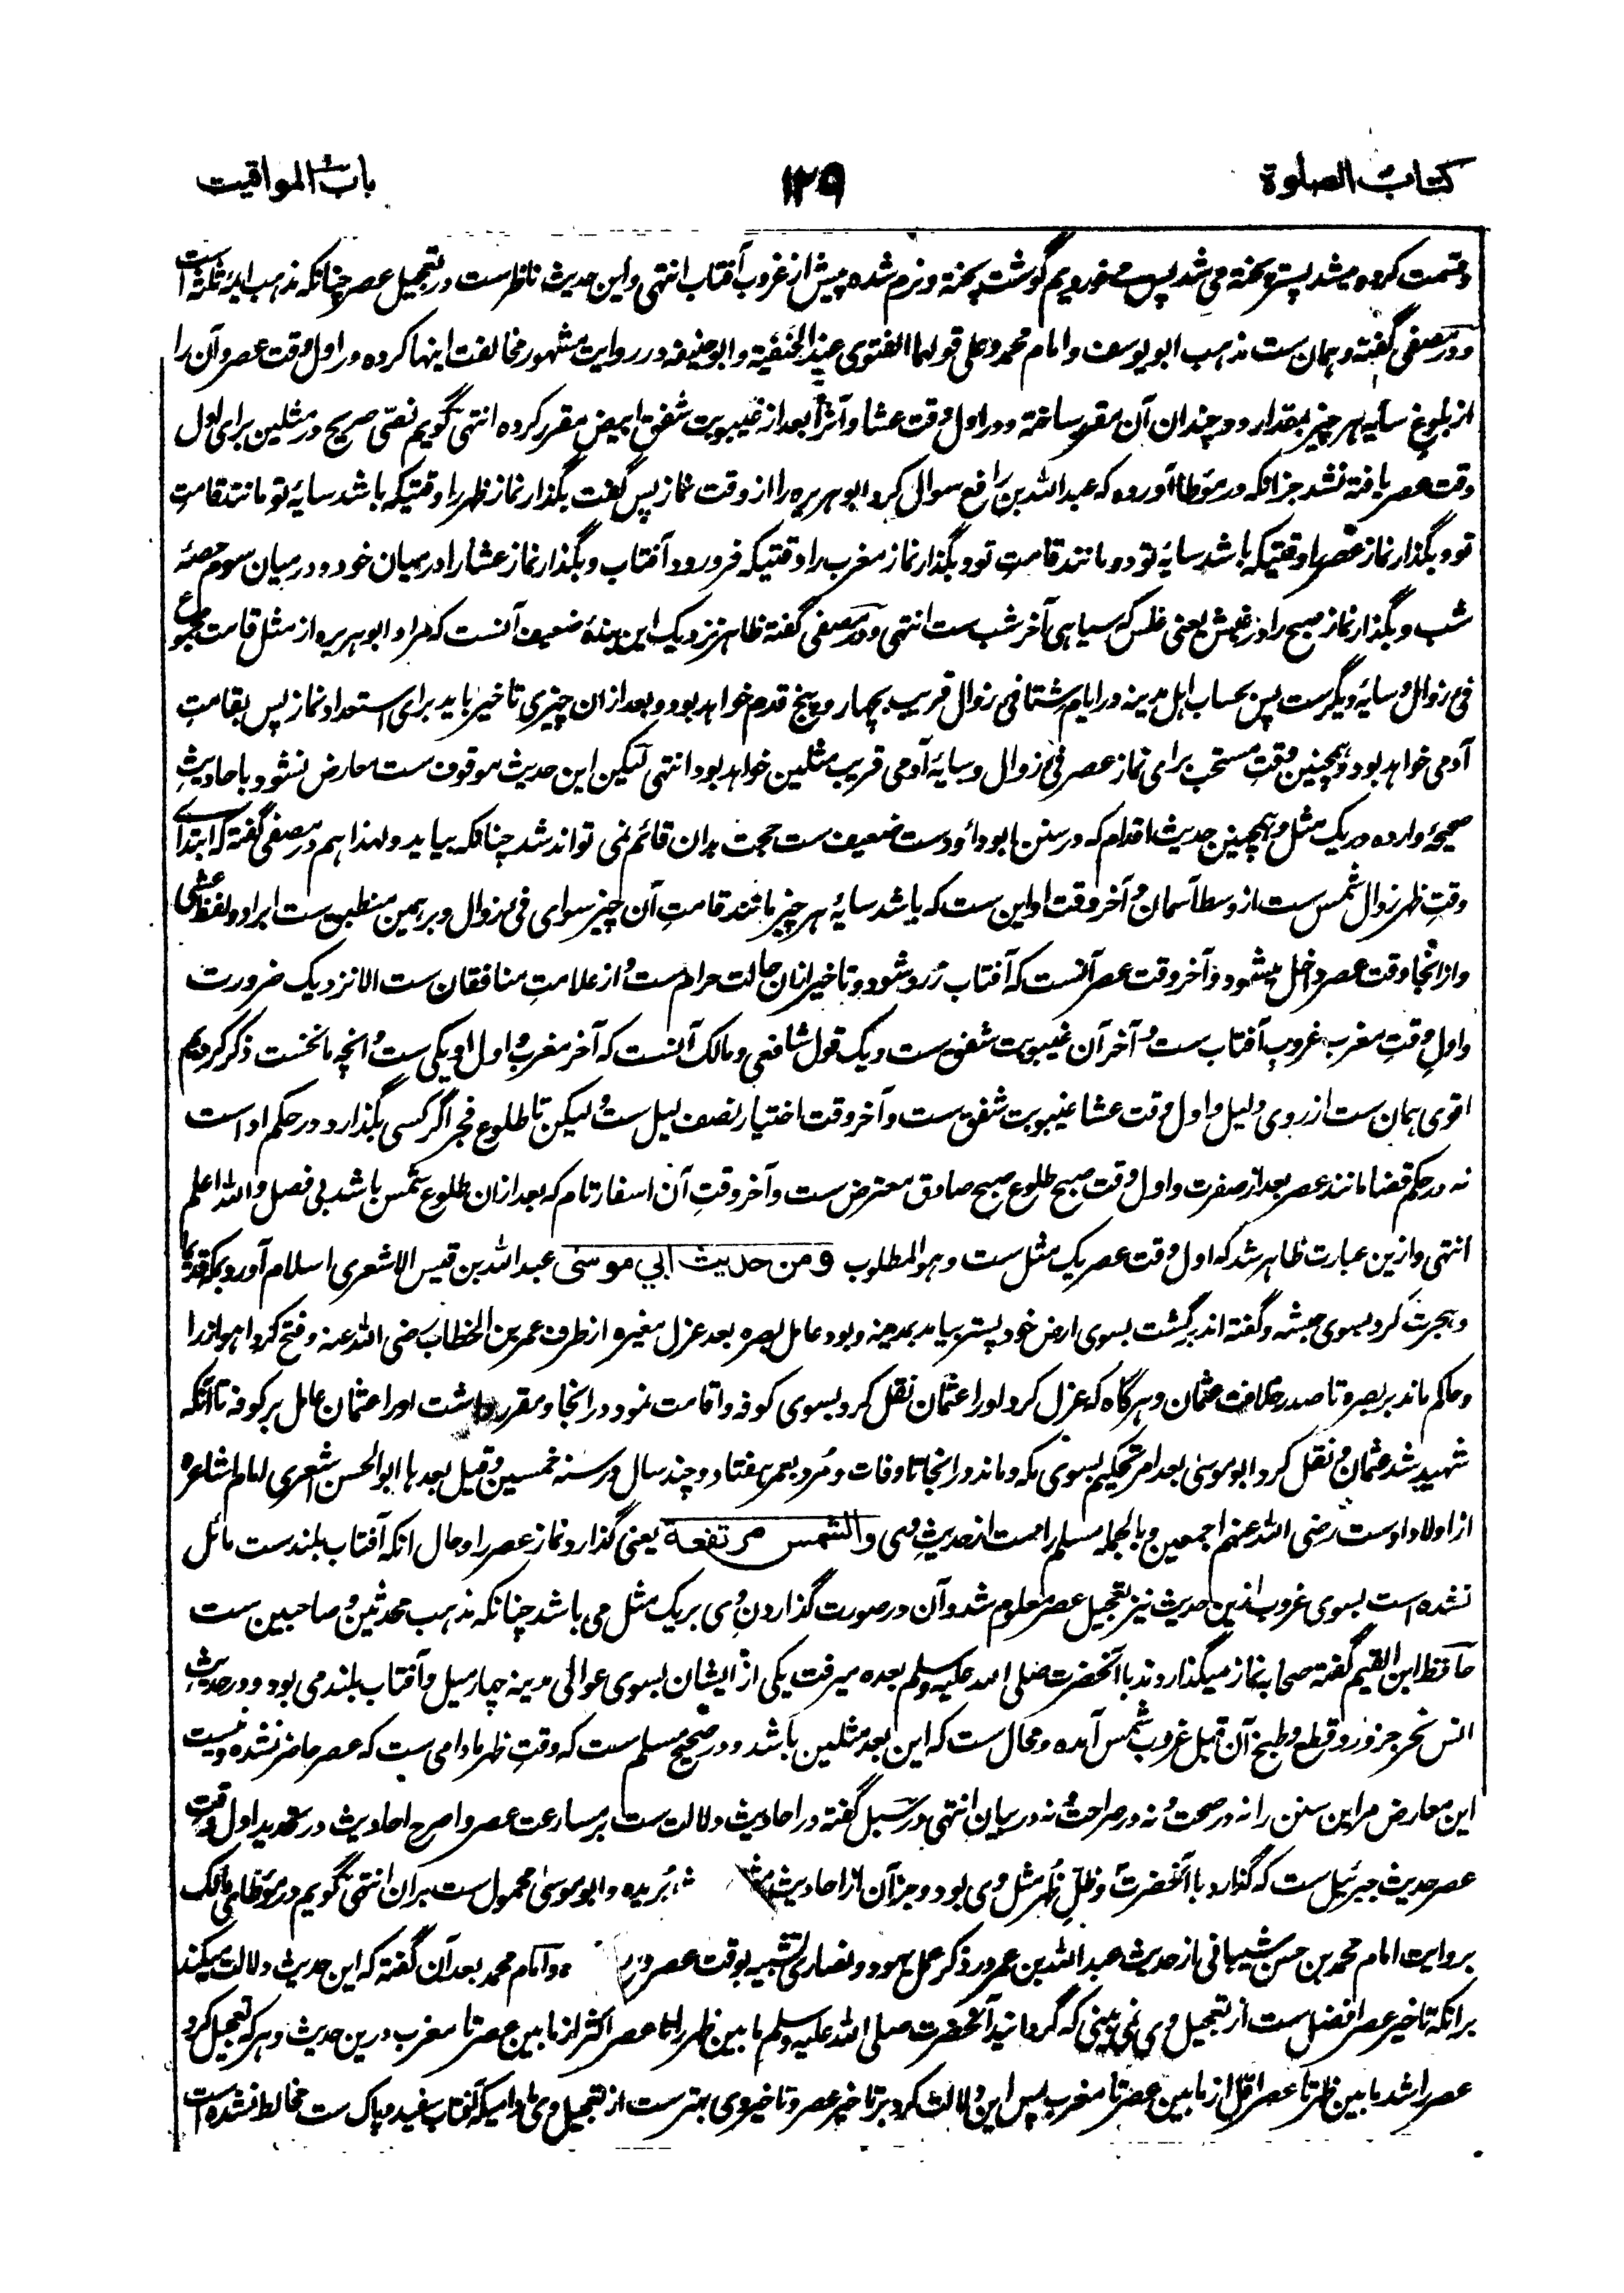 کتاب الصلوة
۱۲۹
باب المواقیت
وقسمت کرده میشد پستر پخته می شد پس میخوردیم گوشت پخته و نرم شده پیش از غروب آفتاب انتهی و این حدیث ناظرست در تعجیل عصر چنانکه مذهب ایمهٔ ثلثه است
و در مصفی گفته و همان ست مذهب ابو یوسف و امام محمد و علی قولهما الفتوی عند الحنفیة و ابو حنیفه در روایت مشهور مخالفت اینها کرده در اول وقت عصر و آن را
از بلوغ سایهٔ هر چیز بمقدار دو چندان آن مقرر ساخته و در اول وقت عشا و آنرا بعد از غیبوبت شفق ابیض مقرر کرده انتهی گویم نصّی صریح در مثلین برای اول
وقت عصر یافته نشد جز انکه در موطا آورده که عبد الله بن رافع سوال کرد ابو هریره را از وقت نماز پس گفت بگذار نماز ظهر را وقتیکه باشد سایهٔ تو مانند قامت
تو و بگذار نماز عصر را وقتیکه باشد سایهٔ تو دو مانند قامت تو و بگذار نماز مغرب را وقتیکه فرو رود آفتاب و بگذار نماز عشا را در میان خود و در میان سوم حصهٔ
شب و بگذار نماز صبح را در غبش یعنی غلس که سیاهی آخر شب ست انتهی و در مصفی گفته ظاهر نزدیک این بندهٔ ضعیف آنست که مراد ابو هریره از مثل قامت مجموع
فی زوال و سایهٔ دیگرست پس بحساب اهل مدینه در ایام شتا فی زوال قریب بچهار و پنج قدم خواهد بود و بعد از ان چیزی تاخیر باید برای استعداد نماز پس بقامت
آدمی خواهد بود و همچنین وقت مستحب برای نماز عصر فی زوال و سایهٔ آدمی قریب مثلین خواهد بود انتهی لیکن این حدیث موقوف ست معارض نشود با حادیث
صحیحهٔ وارده در یک مثل و همچنین حدیث اقدام که در سنن ابو داؤدست ضعیف ست حجت بدان قائم نمی تواند شد چنانکه بیاید و لهذا هم در مصفی گفته که ابتدای
وقت ظهر زوال شمس ست از وسط آسمان و آخر وقت اولین ست که باشد سایهٔ هر چیز مانند قامت آن چیز سوای فی زوال و بر همین منطبق ست ابراد و لفظ عشی
و از انجا وقت عصر داخل میشود و آخر وقت عصر آنست که آفتاب زرد شود و تاخیر از ان حالت حرام ست و از علامت منافقان ست الا نزدیک ضرورت
و اول وقت مغرب غروب آفتاب ست و آخر آن غیبوبت شفق ست و یک قول شافعی و مالک آنست که آخر مغرب و اول او یکی ست و انچه ما نخست ذکر کردیم
اقوی همان ست از روی دلیل و اول وقت عشا غیبوبت شفق ست و آخر وقت اختیار نصف لیل ست و لیکن تا طلوع فجر اگر کسی بگذارد در حکم ادا ست
نه در حکم قضا مانند عصر بعد از صفرت و اول وقت صبح طلوع صبح صادق معترض ست و آخر وقت آن اسفار تام که بعد از ان طلوع شمس باشد بی فصل و الله اعلم
انتهی و ازین عبارت ظاهر شد که اول وقت عصر یک مثل ست و هو المطلوب و من حدیث ابی موسی عبد الله بن قیس الاشعری اسلام آورد بمکه قدیما
و هجرت کرد بسوی حبشه و گفته اند برگشت بسوی ارض خود پستر بیامد بمدینه و بود عامل بصره بعد عزل مغیره از طرف عمر بن الخطاب رضی الله عنه و فتح کرد اهواز را
و حاکم ماند بر بصره تا صدر خلافت عثمان و هرگاه که عزل کرد او را عثمان نقل کرد بسوی کوفه و اقامت نمود در انجا و مقرر داشت او را عثمان عامل بر کوفه تا آنکه
شهید شد عثمان و نقل کرد ابو موسی بعد امر تحکیم بسوی مکه و ماند در انجا تا وفات و مُرد بعمر هفتاد و چند سال در سنه خمسین و قیل بعدها ابو الحسن اشعری امام اشاعره
از اولاد اوست رضی الله عنهم اجمعین و بالجمله مسلم راست از حدیث وی و الشمس مرتفعة یعنی گذارد نماز عصر را و حال انکه آفتاب بلندست مائل
نشده است بسوی غروب ازین حدیث نیز تعجیل عصر معلوم شد و آن در صورت گذاردن وی بر یک مثل می باشد چنانکه مذهب محدثین و صاحبین ست
حافظ ابن القیم گفته صحابه نماز میگذاردند با آنحضرت صلی الله علیه وسلم بعده میرفت یکی از ایشان بسوی عوالی مدینه چار میل و آفتاب بلند می بود و در حدیث
انس نحر جزور و قطع و طبخ آن قبل غروب شمس آمده و محال ست که این بعد مثلین باشد و در صحیح مسلم ست که وقت ظهر مادامی ست که عصر حاضر نشده و نیست
این معارض مر این سنن را نه در صحت و نه در صراحت و نه در بیان انتهی و در سبل گفته در احادیث دلالت ست بر مسارعت عصر و اصرح احادیث در تحدید اول وقت
عصر حدیث جبرئیل ست که گذارد با آنحضرت و ظل ظهر مثل وی بود و جز آن از احادیث بریده و ابو موسی محمول ست بران انتهی گویم در موطای مالک
بروایت امام محمد بن حسن شیبانی از حدیث عبد الله بن عمر در ذکر عمل یهود و نصاری تشبیه بوقت عصر و امام محمد بعد آن گفته که این حدیث دلالت میکند
برانکه تاخیر عصر افضل ست از تعجیل وی نمی بینی که گردانید آنحضرت صلی الله علیه وسلم ما بین ظهر را تا عصر اکثر از ما بین عصر تا مغرب درین حدیث و هر که تعجیل کرد
عصر را شد ما بین ظهر تا عصر اقل از ما بین عصر تا مغرب پس این دلالت کرد بر تاخیر عصر و تاخیر وی بهترست از تعجیل وی مادامیکه آفتاب سفید و پاک ست مخالط نشده است